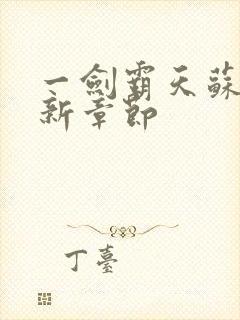 一劍霸天蘇
新章節
丁臺